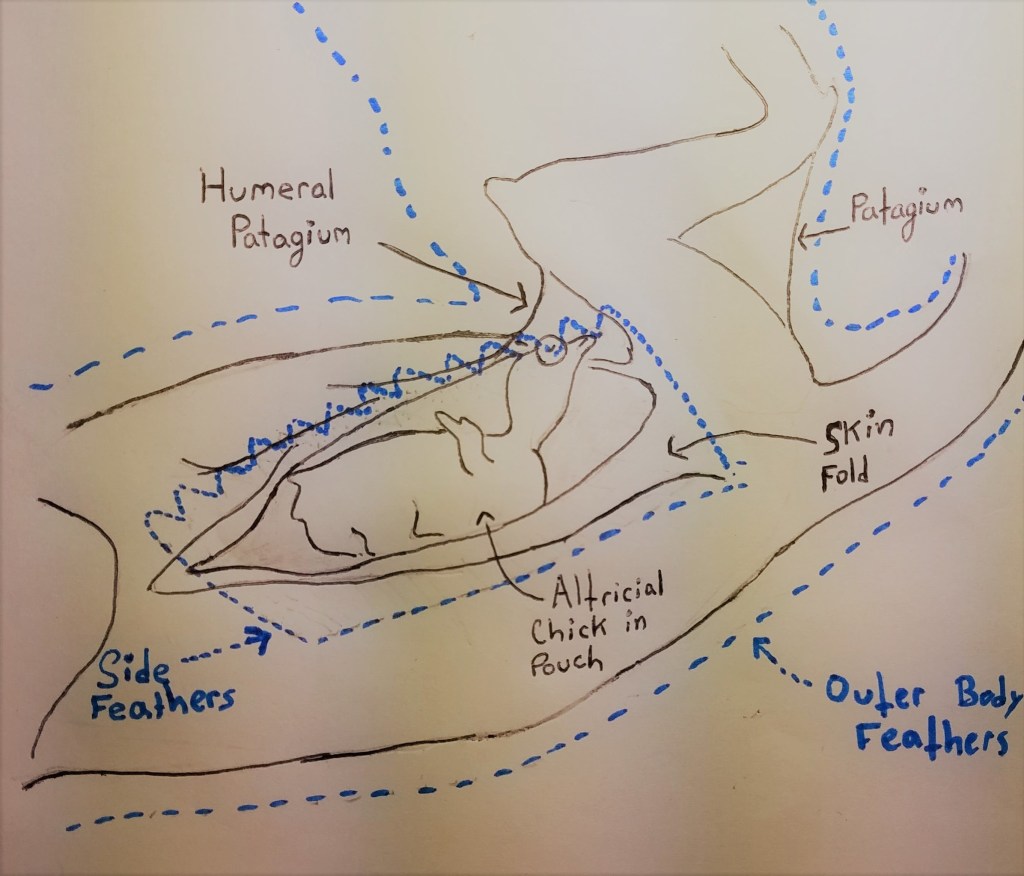 Humeral
Patagium
Patagium
Skin
Fold
Altricial
Chick in
Pouch
Side
Feathers
Outer Body
Feathers